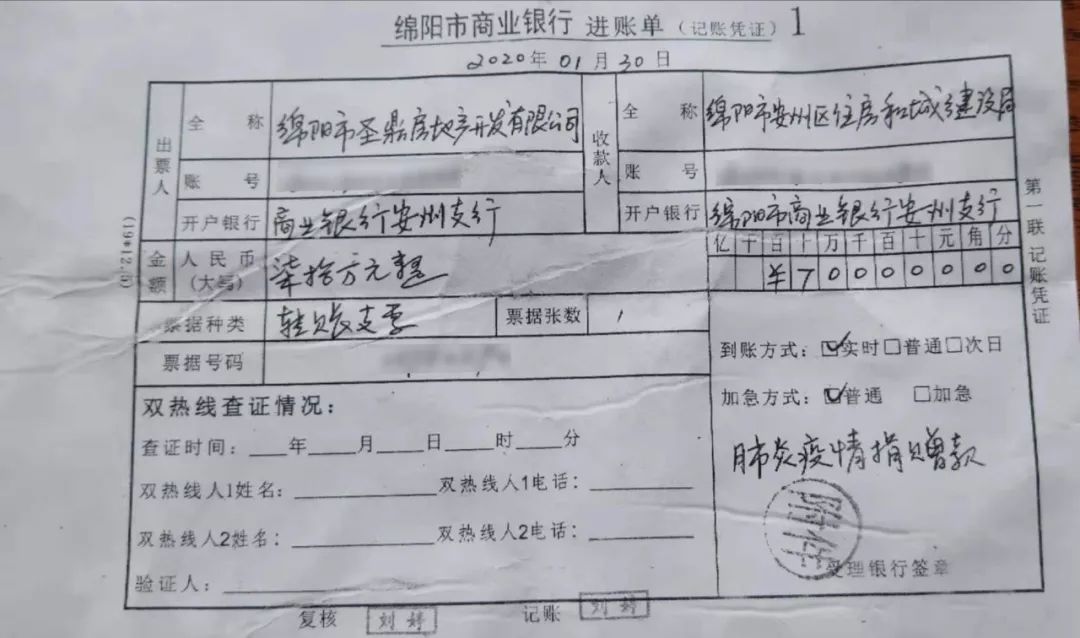 绵阳市商业银行 进账单（记账凭证）1
2020年 01月 30日
出票人
全称 绵阳市圣鼎房地产开发有限公司
账号
开户银行 商业银行安州支行
收款人
全称 绵阳市安州区住房和城建设局
账号
开户银行 绵阳市商业银行安州支行
金额 人民币(大写) 柒拾万元整
亿千百十万千百十元角分
¥70000000
票据种类 转账支票 票据张数 1
票据号码
到账方式：☑实时□普通□次日
加急方式：☑普通 □加急
双热线查证情况：
查证时间：___年___月___日___时___分
双热线人1姓名：__________双热线人1电话：________
双热线人2姓名：__________双热线人2电话：________
验证人：________
肺炎疫情捐赠款
附件
受理银行签章
复核 刘婷 记账 刘婷
第一联 记账凭证